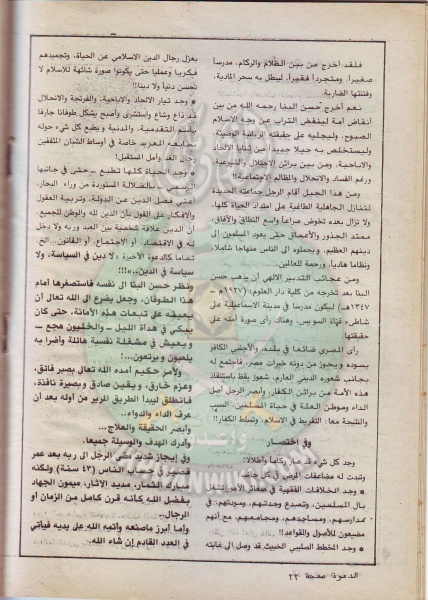 فلقد أخرج من بين الظلام والركام، مدرسا
صغيرا، ومتجردا فقيرا، ليطل به سحر المادية،
وفتنتها الضارية.
نعم أخرج حسن البنا رحمه الله من بين
أنقاض أمة لينفض التراب عن وجه الاسلام
الصبوح، وليجليه على حقيقته الربانية الوضيئة،
وليستخلص به جيلا جديدا من ثنايا الالحاد
والاباحية، ومن بين براثن الاحتلال والشيوعية،
ورغم الفساد والانحلال والمظالم الاجتماعية!!
ومن هذا الجيل أقام الرجل جماعته الجديدة
لتنازل الجاهلية الطاغية على امتداد الحياة كلها،
ولا تزال بعده تخوض صراعا واسع النطاق والآفاق،
ممتد الجذور والأعماق حتى يعود المسلمون إلى
دينهم العظيم، ويحملوه الى الناس منهاجا شاملا،
ونظاما هاديا، ورحمة للعالمين.
ومن عجائب التدبير الالهي أن يذهب حسن
البنا بعد تخرجه من كلية دار العلوم: (١٩٢٧م ـ
١٣٤٧هـ) ليكون مدرسا في مدينة الاسماعيلية على
شاطىء قناة السويس، وهناك رأى صورة أمته على
حقيقتها.
رأى المصري ضائعا في بلده، والأجنبي الكافر
يسوده ويحوز من دونه خيرات مصر، فاجتمع له
بجانب شعوره الديني العارم، شعور يقظ باستنقاذ
هذه الأمة من براثن الكفار، وأبصر الرجل أصل
الداء وموطن العلة في حياة المسلمين، السبب
والنتيجة معا: التفريط في الاسلام، وتسلط الكفار!!
وفي اختصار
وجد كل شيء قد صار ركاما وأطلالا!
وتبدت له مضاعفات المرض في كل جانب:
● وجد الخلافات الفقهية في صغائر الأمور تشغل
بال المسلمين، وتصدع وحدتهم، ومودتهم، في
مدارسهم، ومساجدهم، ومجامعهم، مع أنهم
مضيعون للأصول والقواعد!!
● وجد المخطط الصليبي الخبيث قد وصل إلى غايته
بعزل رجال الدين الاسلامي عن الحياة، وتجميدهم
فكريا وعمليا حتى يكونوا صورة شائهة للاسلام لا
تحسن دنيا ولا دينا!!
● وجد تيار الالحاد والاباحية، والفرنجة والانحلال
قد ذاع وشاع واستشرى وأصبح يشكل طوفانا جارفا
باسم التقدمية، والمدنية ويطبع كل شيء حوله
بطابعه العربيد خاصة في أوساط الشبان المثقفين
رجال الغد وأمل المستقبل!
● وجد الحياة كلها تطبع ـ حتى في جانبها
الرسمي ـ بالضلالة المستوردة من وراء البحار،
أعني فصل الدين عن الدولة، وتربية العقول
والأفكار على القول بأن الدين لله والوطن للجميع،
أن الدين علاقة شخصية بين العبد وربه ولا دخل
له في الاقتصاد، أو الاجتماع، أو القانون... الخ
تماما كالدعوة الأخيرة «لا دين في السياسة، ولا
سياسة في الدين..»!!!
ونظر حسن البنا الى نفسه فاستصغرها أمام
هذا الطوفان، وجعل يضرع الى الله تعالى أن
يعينه على تبعات هذه الأمانة، حتى كان
يبكي في هدأة الليل ـ والخليون هجع ـ
ويعيش في مشغلة نفسية هائلة وأضرا به
يلعبون ويرتعون...!
ولأمر حكيم أمده الله تعالى بصبر فائق،
وعزم خارق، ويقين صادق وبصيرة نافذة،
فانطلق ليبدأ الطريق المرير من أوله بعد أن
عرف الداء والدواء..
وأبصر الحقيقة والعلاج...
وأدرك الهدف والوسيلة جميعا.
وفي إيجاز شديد مضى الرجل الى ربه بعد عمر
قصير في حساب الناس (٤٣ سنة) ولكنه
مبارك الثمار، مديد الآثار، ميمون الجهاد
بفضل الله كأنه قرن كامل من الزمان أو
الرجال..
وأما أبرز ماصنعه وأتمه الله على يديه فيأتي
في العدد القادم إن شاء الله.
الدعوة/ صفحة ٢٣